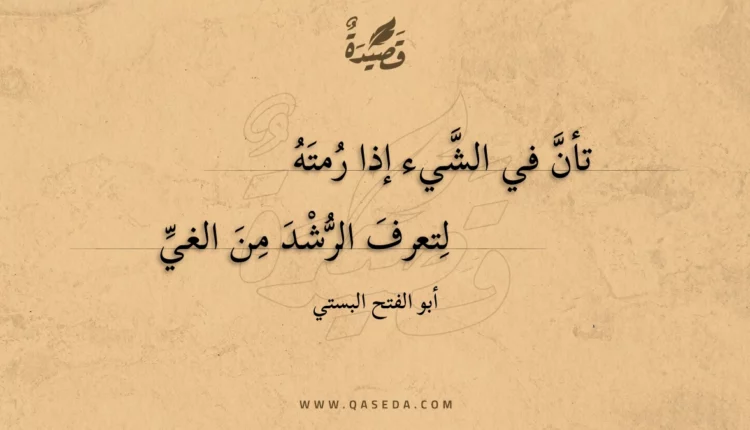 قَصِيْدَةٌ
تأنَّ في الشَّيء إذا رُمتَهُ
لِتعرفَ الرُّشْدَ مِنَ الغيِّ
أبو الفتح البستي
WWW.QASEDA.COM